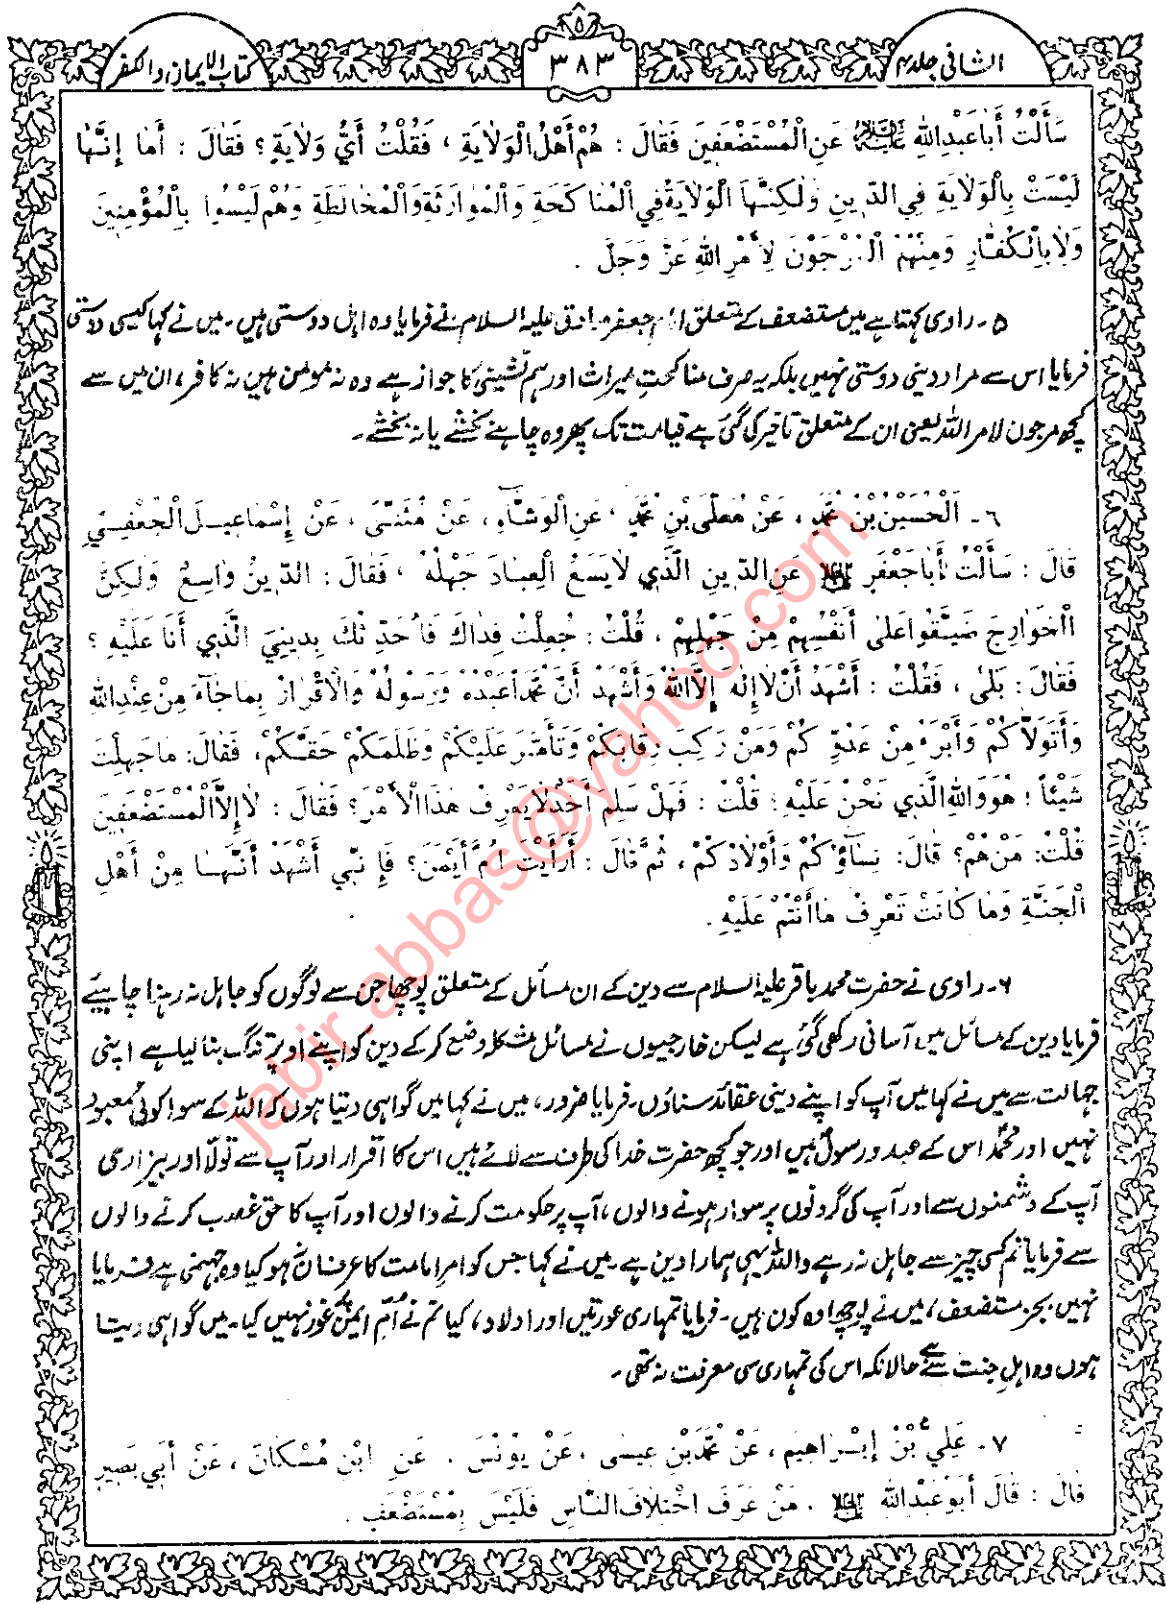 الشافی جلد ۴
۳۸۳
۵
کتاب الایمان و الکفر
سَأَلْتُ أَبَا عَبْدِاللهِ عَلَيْهِ السَّلَامُ عَنِ الْمُسْتَضْعَفِينَ فَقَالَ : هُمْ أَهْلُ الْوَلَايَةِ ، فَقُلْتُ أَيُّ وَلَايَةٍ ؟ فَقَالَ : أَمَا إِنَّهَا
لَيْسَتْ بِالْوَلَايَةِ فِي الدِّينِ وَلَكِنَّهَا الْوَلَايَةُ فِي الْمُنَاكَحَةِ وَالْمُوَارَثَةِ وَالْمُخَالَطَةِ وَهُمْ لَيْسُوا بِالْمُؤْمِنِينَ
وَلَا بِالْكُفَّارِ وَمِنْهُمُ الْمُرْجَوْنَ لِأَمْرِ اللهِ عَزَّ وَجَلَّ .
۵۔ راوی کہتا ہے میں مستضعف کے متعلق امام جعفر صادق علیہ السلام نے فرمایا وہ اہل دوستی ہیں۔ میں نے کہا کیسی دوستی
فرمایا اس سے مراد دینی دوستی نہیں بلکہ یہ صرف مناکحت میراث اور ہم نشینی کا جواز ہے وہ نہ مومن ہیں نہ کافر، ان میں سے
کچھ مرجون لامر اللہ یعنی ان کے متعلق تاخیر کی گئی ہے قیامت تک پھر وہ چاہے بخشے یا نہ بخشے۔
۶- اَلْحُسَيْنُ بْنُ مُحَمَّدٍ ، عَنْ مُعَلَّى بْنِ مُحَمَّدٍ ، عَنِ الْوَشَّاءِ ، عَنْ مُثَنَّى ، عَنْ إِسْمَاعِيلَ الْجُعْفِيِّ
قَالَ : سَأَلْتُ أَبَا جَعْفَرٍ عليه السلام عَنِ الدِّينِ الَّذِي لَا يَسَعُ الْعِبَادَ جَهْلُهُ ، فَقَالَ : الدِّينُ وَاسِعٌ وَلَكِنَّ
الْخَوَارِجَ ضَيَّقُوا عَلَى أَنْفُسِهِمْ مِنْ جَهْلِهِمْ ، قُلْتُ : جُعِلْتُ فِدَاكَ فَأُحَدِّثُكَ بِدِينِيَ الَّذِي أَنَا عَلَيْهِ ؟
فَقَالَ : بَلَى ، فَقُلْتُ : أَشْهَدُ أَنْ لَا إِلَهَ إِلَّا اللهُ وَأَشْهَدُ أَنَّ مُحَمَّداً عَبْدُهُ وَرَسُولُهُ وَالْإِقْرَارُ بِمَا جَاءَ مِنْ عِنْدِ اللهِ
وَأَتَوَلَّاكُمْ وَأَبْرَءُ مِنْ عَدُوِّكُمْ وَمَنْ رَكِبَ رِقَابَكُمْ وَتَأَمَّرَ عَلَيْكُمْ وَظَلَمَكُمْ حَقَّكُمْ ، فَقَالَ : مَا جَهِلْتَ
شَيْئاً ؛ هُوَ وَاللهِ الَّذِي نَحْنُ عَلَيْهِ ؛ قُلْتُ : فَهَلْ سَلِمَ أَحَدٌ لَا يَعْرِفُ هَذَا الْأَمْرَ؟ فَقَالَ : لَا إِلَّا الْمُسْتَضْعَفِينَ
قُلْتُ: مَنْ هُمْ؟ قَالَ: نِسَاؤُكُمْ وَأَوْلَادُكُمْ ، ثُمَّ قَالَ : أَرَأَيْتَ أُمَّ أَيْمَنَ؟ فَإِنِّي أَشْهَدُ أَنَّهَا مِنْ أَهْلِ
الْجَنَّةِ وَمَا كَانَتْ تَعْرِفُ مَا أَنْتُمْ عَلَيْهِ .
۶۔ راوی نے حضرت محمد باقر علیہ السلام سے دین کے ان مسائل کے متعلق پوچھا جن سے لوگوں کو جاہل نہ رہنا چاہیئے
فرمایا دین کے مسائل میں آسانی رکھی گئی ہے لیکن خارجیوں نے مسائل مشکلہ وضع کرکے دین کو اپنے اوپر تنگ بنا لیا ہے اپنی
جہالت سے میں نے کہا میں آپ کو اپنے دینی عقائد سناؤں۔ فرمایا ضرور، میں نے کہا میں گواہی دیتا ہوں کہ اللہ کے سوا کوئی معبود
نہیں اور محمدؐ اس کے عبد و رسول ہیں اور جو کچھ حضرت خدا کی طرف سے لائے ہیں اس کا اقرار اور آپ سے تولّا اور بیزاری
آپ کے دشمنوں سے اور آپ کی گردنوں پر سوار ہونے والوں ، آپ پر حکومت کرنے والوں اور آپ کا حق غصب کرنے والوں
سے فرمایا تم کسی چیز سے جاہل نہ رہے واللہ یہی ہمارا دین ہے۔ میں نے کہا جس کو امر امامت کا عرفان نہ ہو کیا وہ جہنمی ہے فرمایا
نہیں بجز مستضعف ، میں نے پوچھا وہ کون ہیں۔ فرمایا تمہاری عورتیں اور اولاد ، کیا تم نے اُمِّ ایمن پر غور نہیں کیا۔ میں گواہی دیتا
ہوں وہ اہل جنت سے ہے حالانکہ اس کی تمہاری سی معرفت نہ تھی۔
۷- عَلِيُّ بْنُ إِبْرَاهِيمَ ، عَنْ مُحَمَّدِ بْنِ عِيسَى ، عَنْ يُونُسَ . عَنِ ابْنِ مُسْكَانَ ، عَنْ أَبِي بَصِيرٍ
قَالَ : قَالَ أَبُو عَبْدِاللهِ عليه السلام . مَنْ عَرَفَ اخْتِلَافَ النَّاسِ فَلَيْسَ بِمُسْتَضْعَفٍ .
jabir.abbas@yahoo.com